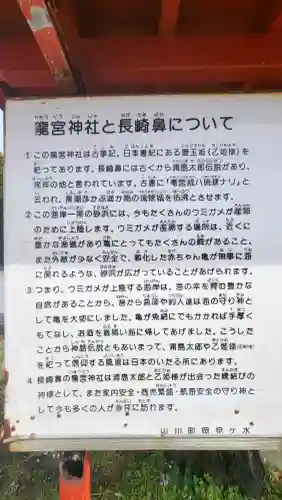 龍宮神社と長崎鼻について
①この龍宮神社は古事記、日本書紀にある豊玉姫（乙姫様）を
祀ってあります。長崎鼻には古くから浦島太郎伝説があり、
発祥の地と言われています。古書に「竜宮城ハ琉球ナリ」と
云われ、黒潮踊る
２この海岸一帯の砂浜には、今もたくさんのウミガメが産卵
のために上陸します。ウミガメが産卵する場所は、近くに
豊かな漁礁があり亀にとってもたくさんの餌があること、
また外敵が少なく安全で、孵化した赤ちゃん亀が無事に海
に戻れるような、砂浜が広がっていることがあげられます。
３つまり、ウミガメが上陸する海岸は、海の幸を育む豊かな
自然があることから、昔から漁港や釣人達は海の守り神と
して亀を大切にしました。亀が魚網にでもかかれば手厚く
もてなし、お酒を飲ませ海に帰してあげました。こうした
ことから神話伝説ともあいまって、浦島太郎や乙姫様
を祀って信仰する風習は日本のいたる所にあります。
４長崎鼻の龍宮神社は浦島太郎と乙姫様が出会った縁結びの
神様として、また家内安全・商売繁盛・航海安全の守り神と
して今も多くの人が参拝に訪れます。
山川町岡児ケ水